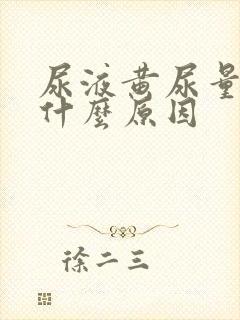 尿液黄尿量
什麼原因
徐二三